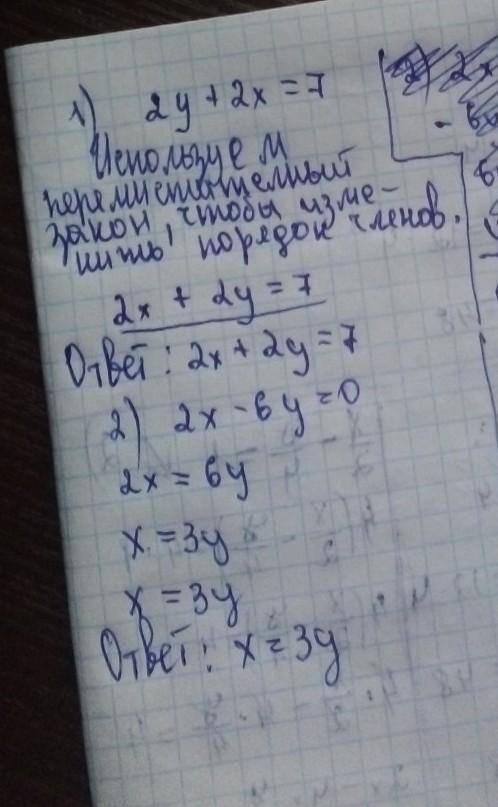 1) 2y + 2x = 7
Используем
перемистительный
закон, чтобы изме-
нить порядок членов.
2x + 2y = 7
Ответ: 2x + 2y = 7
2) 2x - 6y = 0
2x = 6y
x = 3y
x = 3y
Ответ: x = 3y